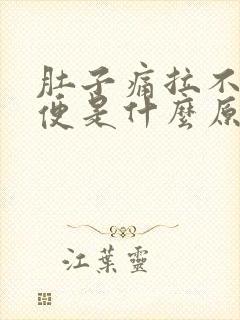 肚子痛拉不
便是什麼原
江葉靈